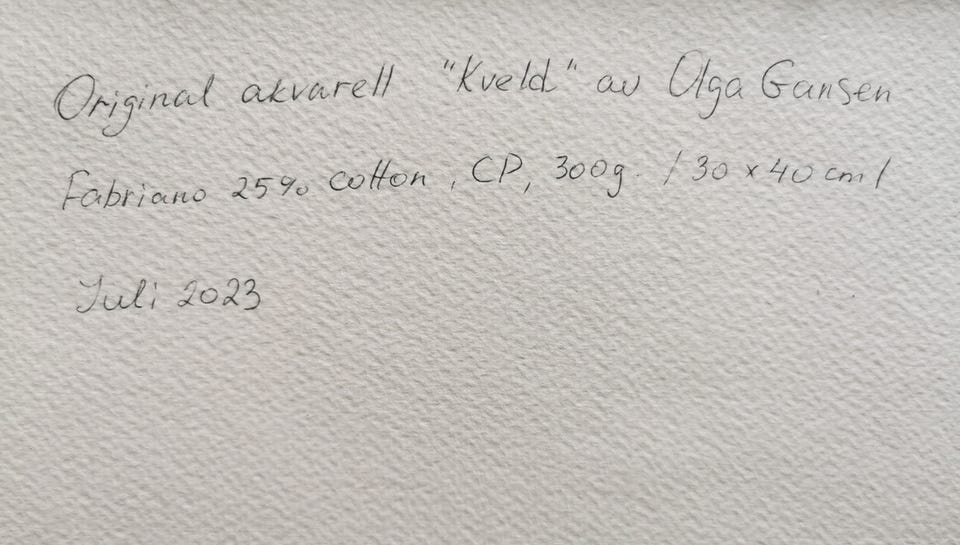 Original akvarell "Kveld" av Olga Gansen
Fabriano 25% cotton, CP, 300g. /30 x 40 cm/
Juli 2023